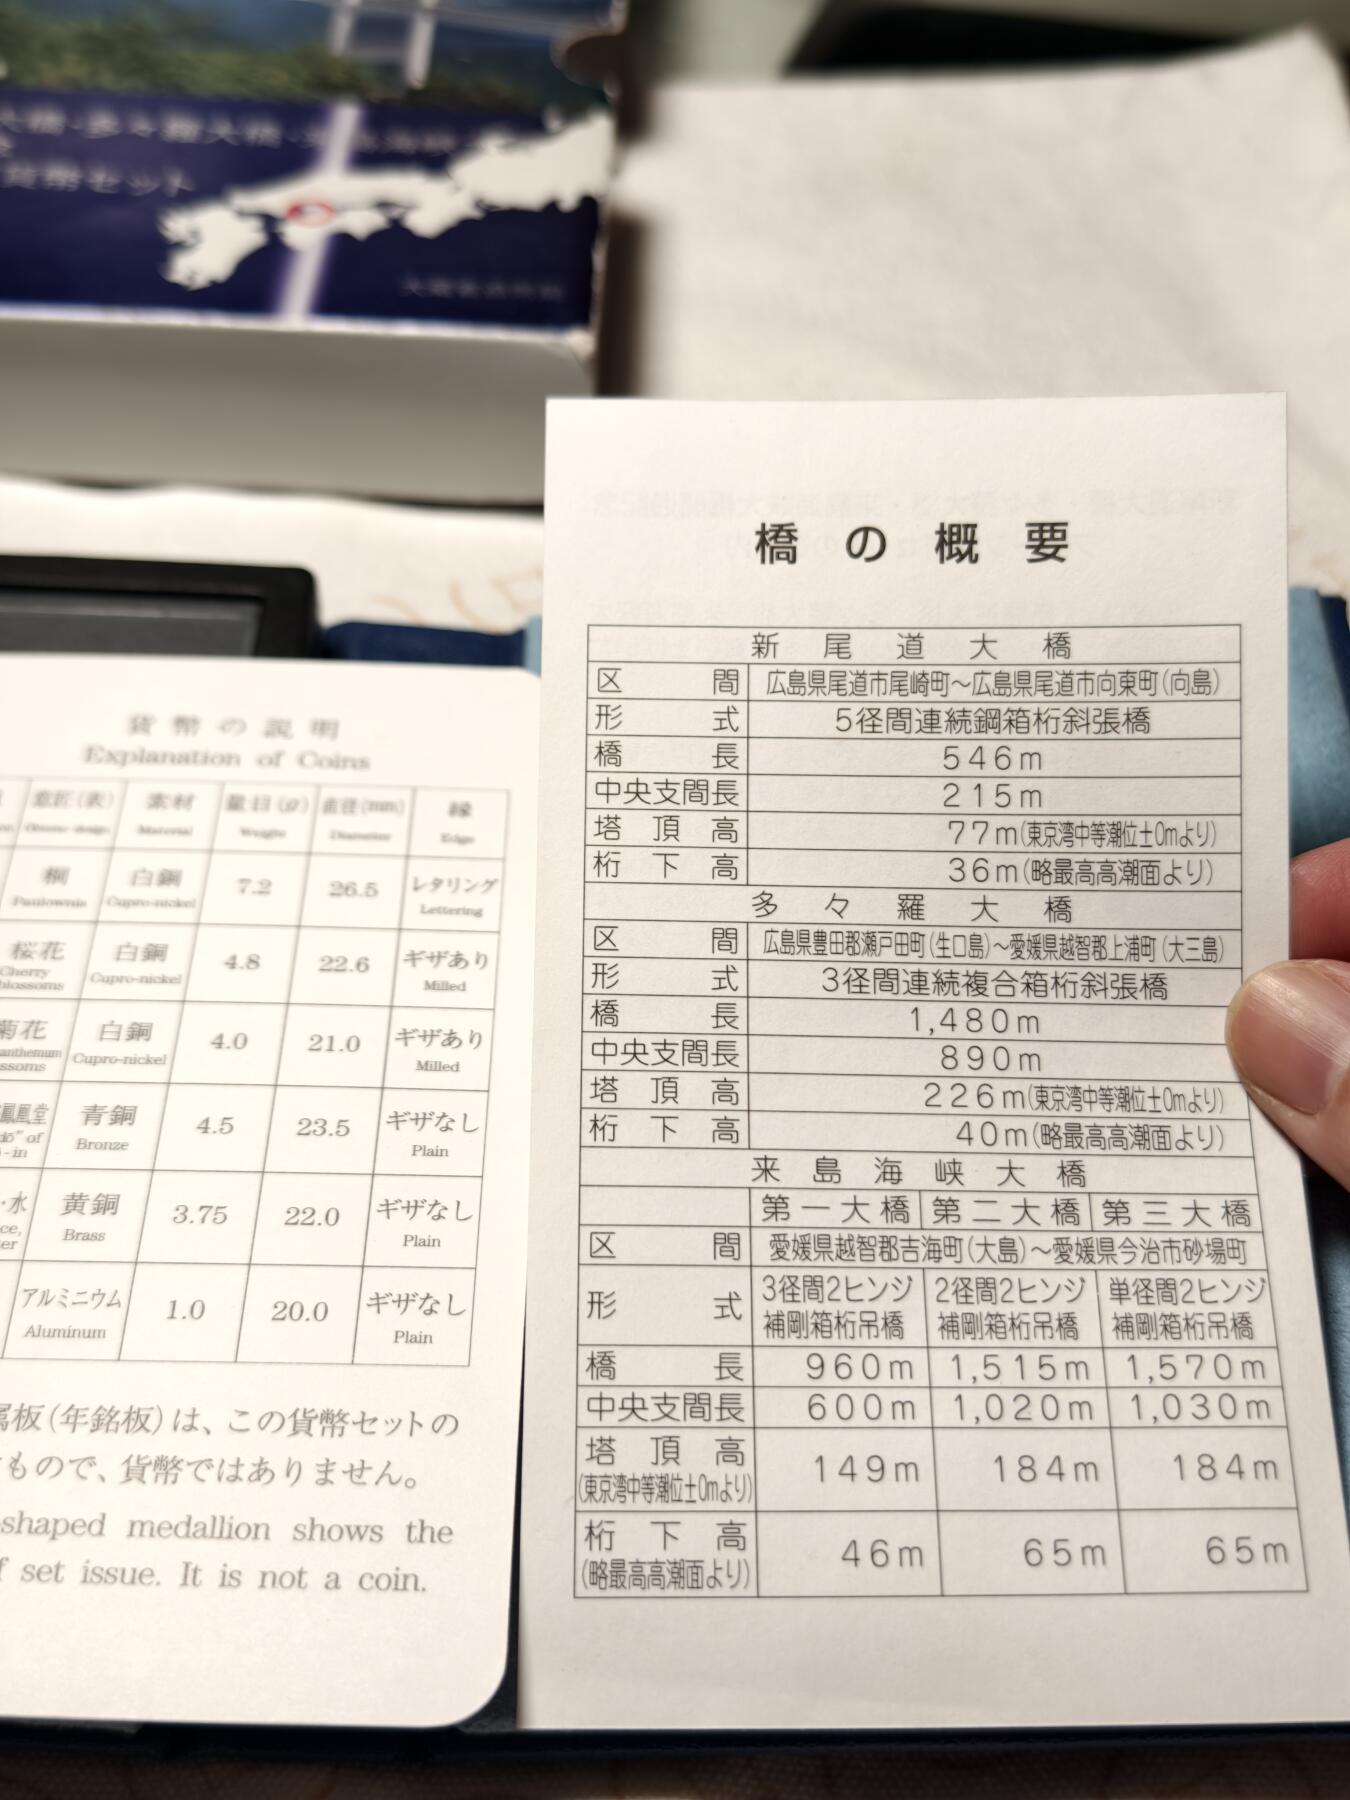 貨幣セット
貨幣の説明
Explanation of Coins
意匠(表) 素材 量目(g) 直径(mm) 縁
Obverse design Material Weight Diameter Edge
桐 白銅 7.2 26.5 レタリング
Paulownia Cupro-nickel Lettering
桜花 白銅 4.8 22.6 ギザあり
Cherry blossoms Cupro-nickel Milled
菊花 白銅 4.0 21.0 ギザあり
anthemum Cupro-nickel Milled
ssoms
鳳凰堂 青銅 4.5 23.5 ギザなし
dō" of Bronze Plain
-in
・水 黄銅 3.75 22.0 ギザなし
ce, Brass Plain
ter
アルミニウム 1.0 20.0 ギザなし
Aluminum Plain
属板(年銘板)は、この貨幣セットの
もので、貨幣ではありません。
-shaped medallion shows the
f set issue. It is not a coin.
橋の概要
新尾道大橋
区間 広島県尾道市尾崎町〜広島県尾道市向東町(向島)
形式 5径間連続鋼箱桁斜張橋
橋長 546m
中央支間長 215m
塔頂高 77m(東京湾中等潮位±0mより)
桁下高 36m(略最高高潮面より)
多々羅大橋
区間 広島県豊田郡瀬戸田町(生口島)〜愛媛県越智郡上浦町(大三島)
形式 3径間連続複合箱桁斜張橋
橋長 1,480m
中央支間長 890m
塔頂高 226m(東京湾中等潮位±0mより)
桁下高 40m(略最高高潮面より)
来島海峡大橋
第一大橋 第二大橋 第三大橋
区間 愛媛県越智郡吉海町(大島)〜愛媛県今治市砂場町
形式 3径間2ヒンジ 2径間2ヒンジ 単径間2ヒンジ
補剛箱桁吊橋 補剛箱桁吊橋 補剛箱桁吊橋
橋長 960m 1,515m 1,570m
中央支間長 600m 1,020m 1,030m
塔頂高 149m 184m 184m
(東京湾中等潮位±0mより)
桁下高 46m 65m 65m
(略最高高潮面より)